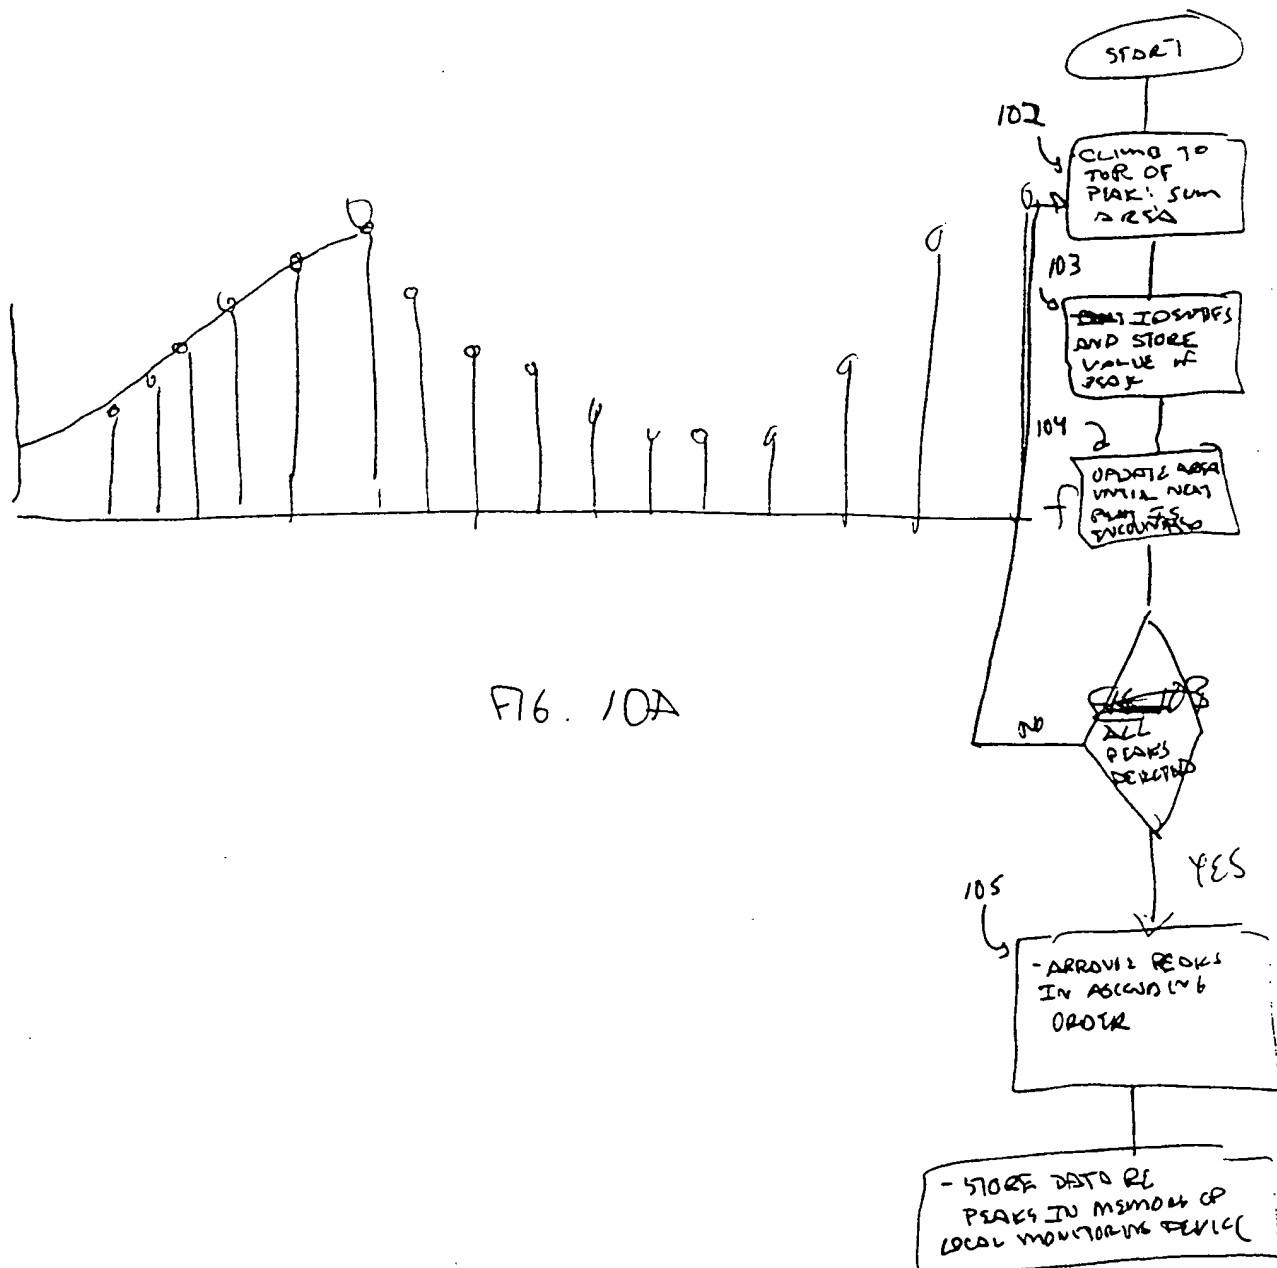 START
102
CLIMB TO
TOP OF
PEAK: SUM
AREA
103
IDENTIFS
AND STORE
VALUE OF
PEAK
104
UPDATE AREA
UNTIL NEXT
PEAK IS
ENCOUNTERED
ALL
PEAKS
NO
YES
FIG. 10A
105
- ARRANGE PEAKS
IN ASCENDING
ORDER
- STORE DATA RE
PEAKS IN MEMORY OF
LOCAL MONITORING DEVICE